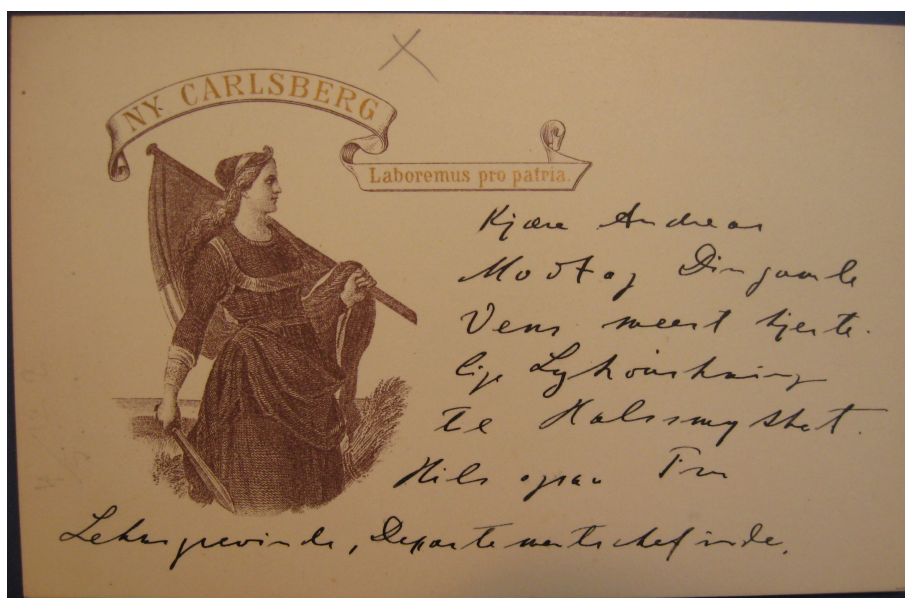 NY CARLSBERG
Laboremus pro patria.
Kjære Andreas
Modtag Din gamle
Vens meest hjerte-
lige Lykønskning
til Halssmykket.
Hils ogsaa Fru
Lehnsgrevinde, Departementschefinde.